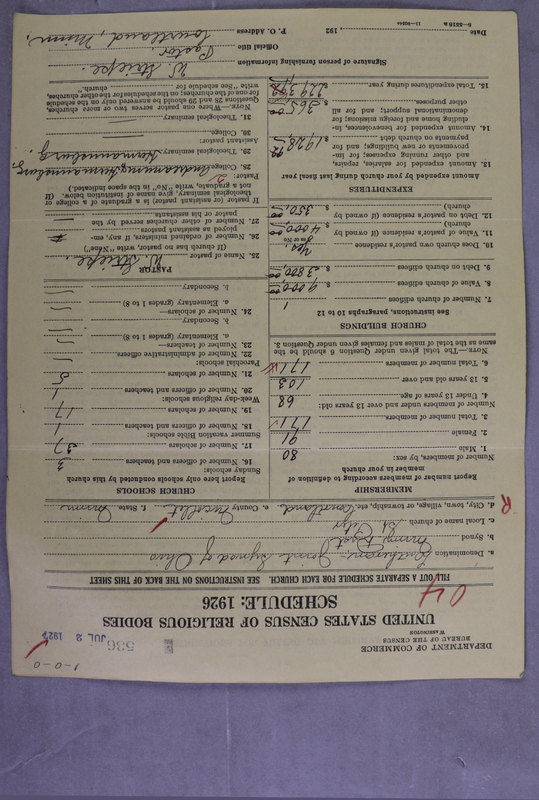 1-0-0
DEPARTMENT OF COMMERCE
BUREAU OF THE CENSUS
WASHINGTON
536
JUL 2 1927
UNITED STATES CENSUS OF RELIGIOUS BODIES
SCHEDULE: 1926
04
FILL OUT A SEPARATE SCHEDULE FOR EACH CHURCH. SEE INSTRUCTIONS ON THE BACK OF THIS SHEET
a. Denomination Lutheran - Joint Synod of Ohio
b. Synod Minn. Dist
c. Local name of church St
R d. City, town, village, or township, etc. Courtland e. County Nicollet f. State Minn
MEMBERSHIP
Report number of members according to definition of member in your church
Number of members, by sex:
1. Male 80
2. Female 91
3. Total number of members 171
Number of members under and over 13 years old:
4. Under 13 years of age 68
5. 13 years old and over 103
6. Total number of members 171
NOTE.—The total given under Question 6 should be the same as the total of males and females given under Question 3.
CHURCH BUILDINGS
See instructions, paragraphs 10 to 12
7. Number of church edifices 1
8. Value of church edifices $ 9000.00
9. Debt on church edifices $ 3800.00
10. Does church own pastor's residence Yes
(Yes or No)
11. Value of pastor's residence (if owned by church) $ 4000.00
12. Debt on pastor's residence (if owned by church) $ 350.00
EXPENDITURES
Amount expended by your church during last fiscal year
13. Amount expended for salaries, repairs, and other running expenses; for improvements or new buildings; and for payments on church debt $ 1928.
14. Amount expended for benevolences, including home and foreign missions; for denominational support; and for all other purposes $ 365.00
15. Total expenditures during year $
CHURCH SCHOOLS
Report here only schools conducted by this church
Sunday schools:
16. Number of officers and teachers 3
17. Number of scholars 37
Summer vacation Bible schools:
18. Number of officers and teachers 1
19. Number of scholars 17
Week-day religious schools:
20. Number of officers and teachers 1
21. Number of scholars 5
Parochial schools:
22. Number of administrative officers —
23. Number of teachers—
a. Elementary (grades 1 to 8) —
b. Secondary —
24. Number of scholars—
a. Elementary (grades 1 to 8) —
b. Secondary —
PASTOR
25. Name of pastor W.
(If church has no pastor, write "None")
26. Number of ordained ministers, if any, employed as pastor's assistants
27. Number of other churches served by the pastor or his assistants —
If pastor (or assistant pastor) is a graduate of a college or theological seminary, give name of institution below. (If not a graduate, write "No" in the space indicated.)
Pastor:
28. College Hermannsburg
29. Theological seminary Hermannsburg.
Assistant pastor:
30. College
31. Theological seminary
NOTE.—Where one pastor serves two or more churches, Questions 28 and 29 should be answered only on the schedule for one of the churches; on the schedules for the other churches, write "See schedule for church."
Signature of person furnishing information W.
Official title Pastor.
P. O. Address Courtland, Minn.
Date , 192